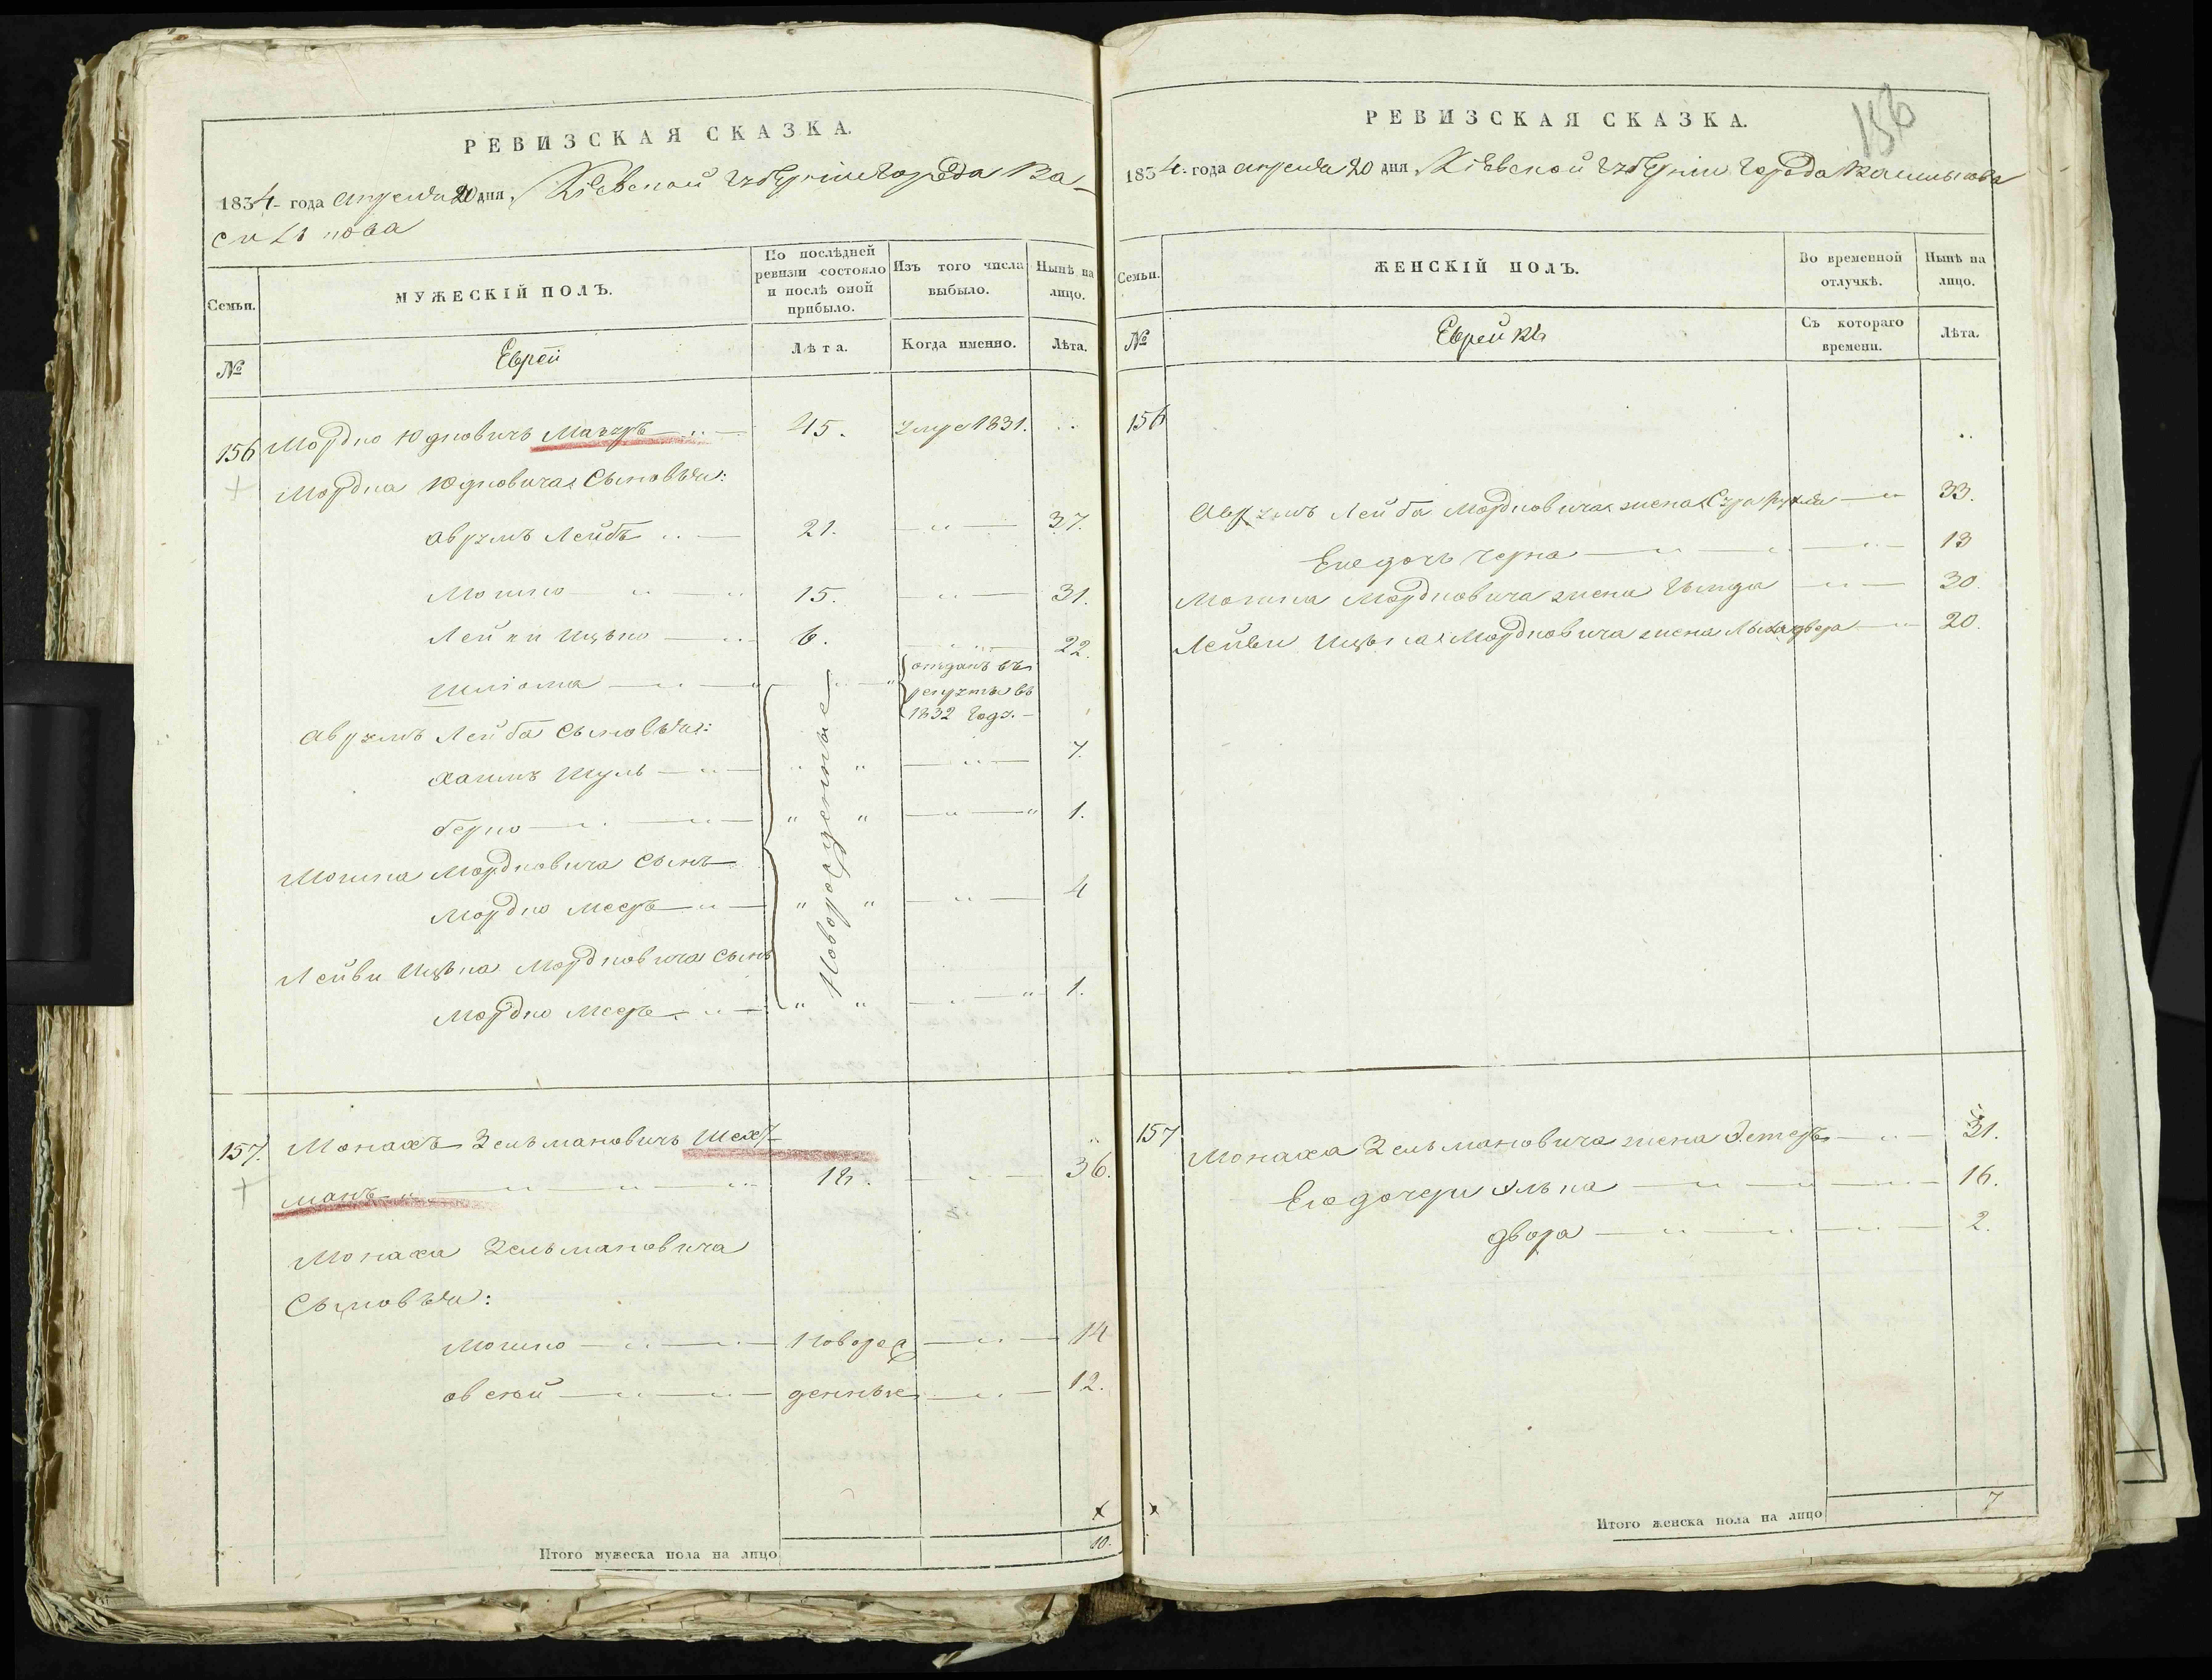 РЕВИЗСКАЯ СКАЗКА.
1834 года апреля 20 дня, Кіевской губерніи города Ва-
силькова
Семьи.
МУЖЕСКІЙ ПОЛЪ.
По послѣдней ревизіи состояло и послѣ оной прибыло.
Изъ того числа выбыло.
Нынѣ на лицо.
№
Евреи
Лѣта.
Когда именно.
Лѣта.
156 Мордко Юдковичъ Мазуръ 45. умре 1831.
Мордка Юдковича Сыновья:
Аврумъ Лейба 21. 37.
Мошко 15. 31.
Лейви Ицько 6. 22.
Шліома отданъ въ рекруты въ 1832 году.
Аврумъ Лейба Сыновья:
Хаимъ Шуль 7.
Берко 1.
Мошка Мордковича Сынъ
Мордко Мееръ 4
Лейви Ицька Мордковича Сынъ
Мордко Мееръ 1.
Новорожденные
157. Монахъ Зельмановичъ Шехт-
манъ 18. 36.
Монаха Зельмановича
Сыновья:
Мошко Новорож 14
Овсей денные 12.
Итого мужеска пола на лицо 10.
РЕВИЗСКАЯ СКАЗКА.
156
1834 года апреля 20 дня, Кіевской губерніи города Василькова
Семьи.
ЖЕНСКІЙ ПОЛЪ.
Во временной отлучкѣ.
Нынѣ на лицо.
№
Еврейки
Съ котораго времени.
Лѣта.
156
Аврумъ Лейба Мордковича жена Сура 33.
Ево дочь Черна 13
Мошка Мордковича жена 30.
Лейви Ицька Мордковича жена 20.
157
Монаха Зельмановича жена Эстеръ 31.
Ево дочери 16.
Двора 2.
Итого женска пола на лицо 7